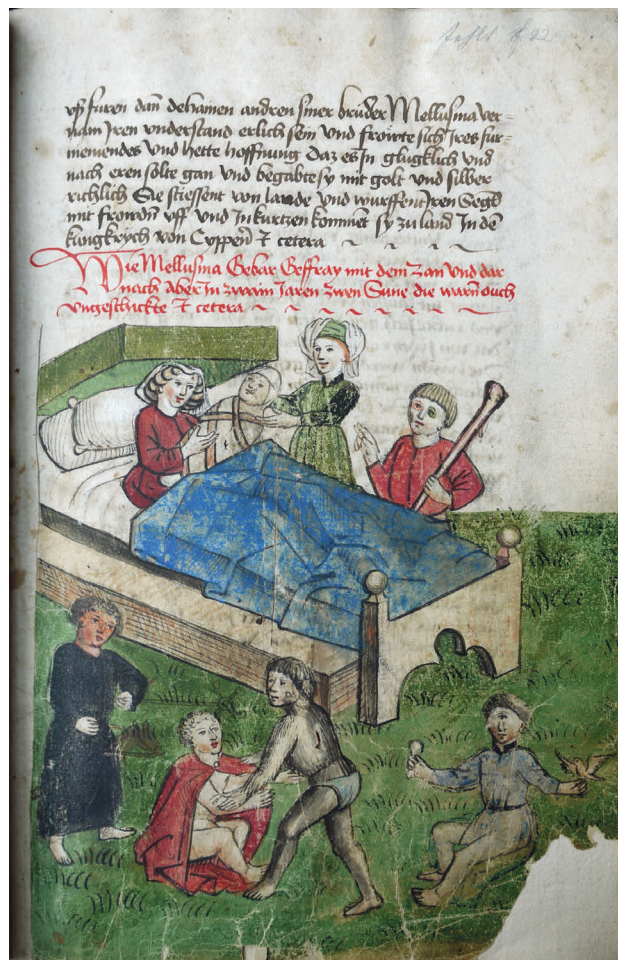 fehlt 22
vß furen dan̄ dehainen andren siner brüder Mellusina ver=
nam Jren vnderstand erlich sein Vnd frowte sich Jres für=
nemendes Vnd hette hoffnung daz es Jn glugklich Vnd
nach eren solte gan Vnd begabte sy mit golt vnd silber
richlich Sie stiessent von lande Vnd wurffent Jren Segel
mit frowdn̄ vff Vnd Jn kurtzen komment sy zu land In de
kungkrych von Cyppen̄ ⁊ cetera
Wie Mellusina Gebar Geffray mit dem Zan Vnd dar
nach aber In zwain Jaren zwen Sune die warn̄ ouch
vngeschickte ⁊ cetera